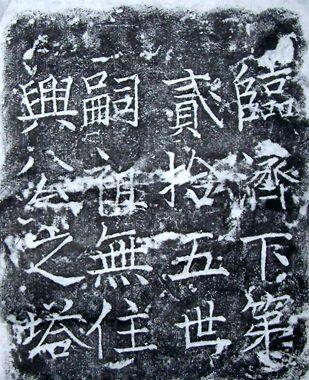 臨濟下第
貳拾五世
嗣祖無住
興公之塔